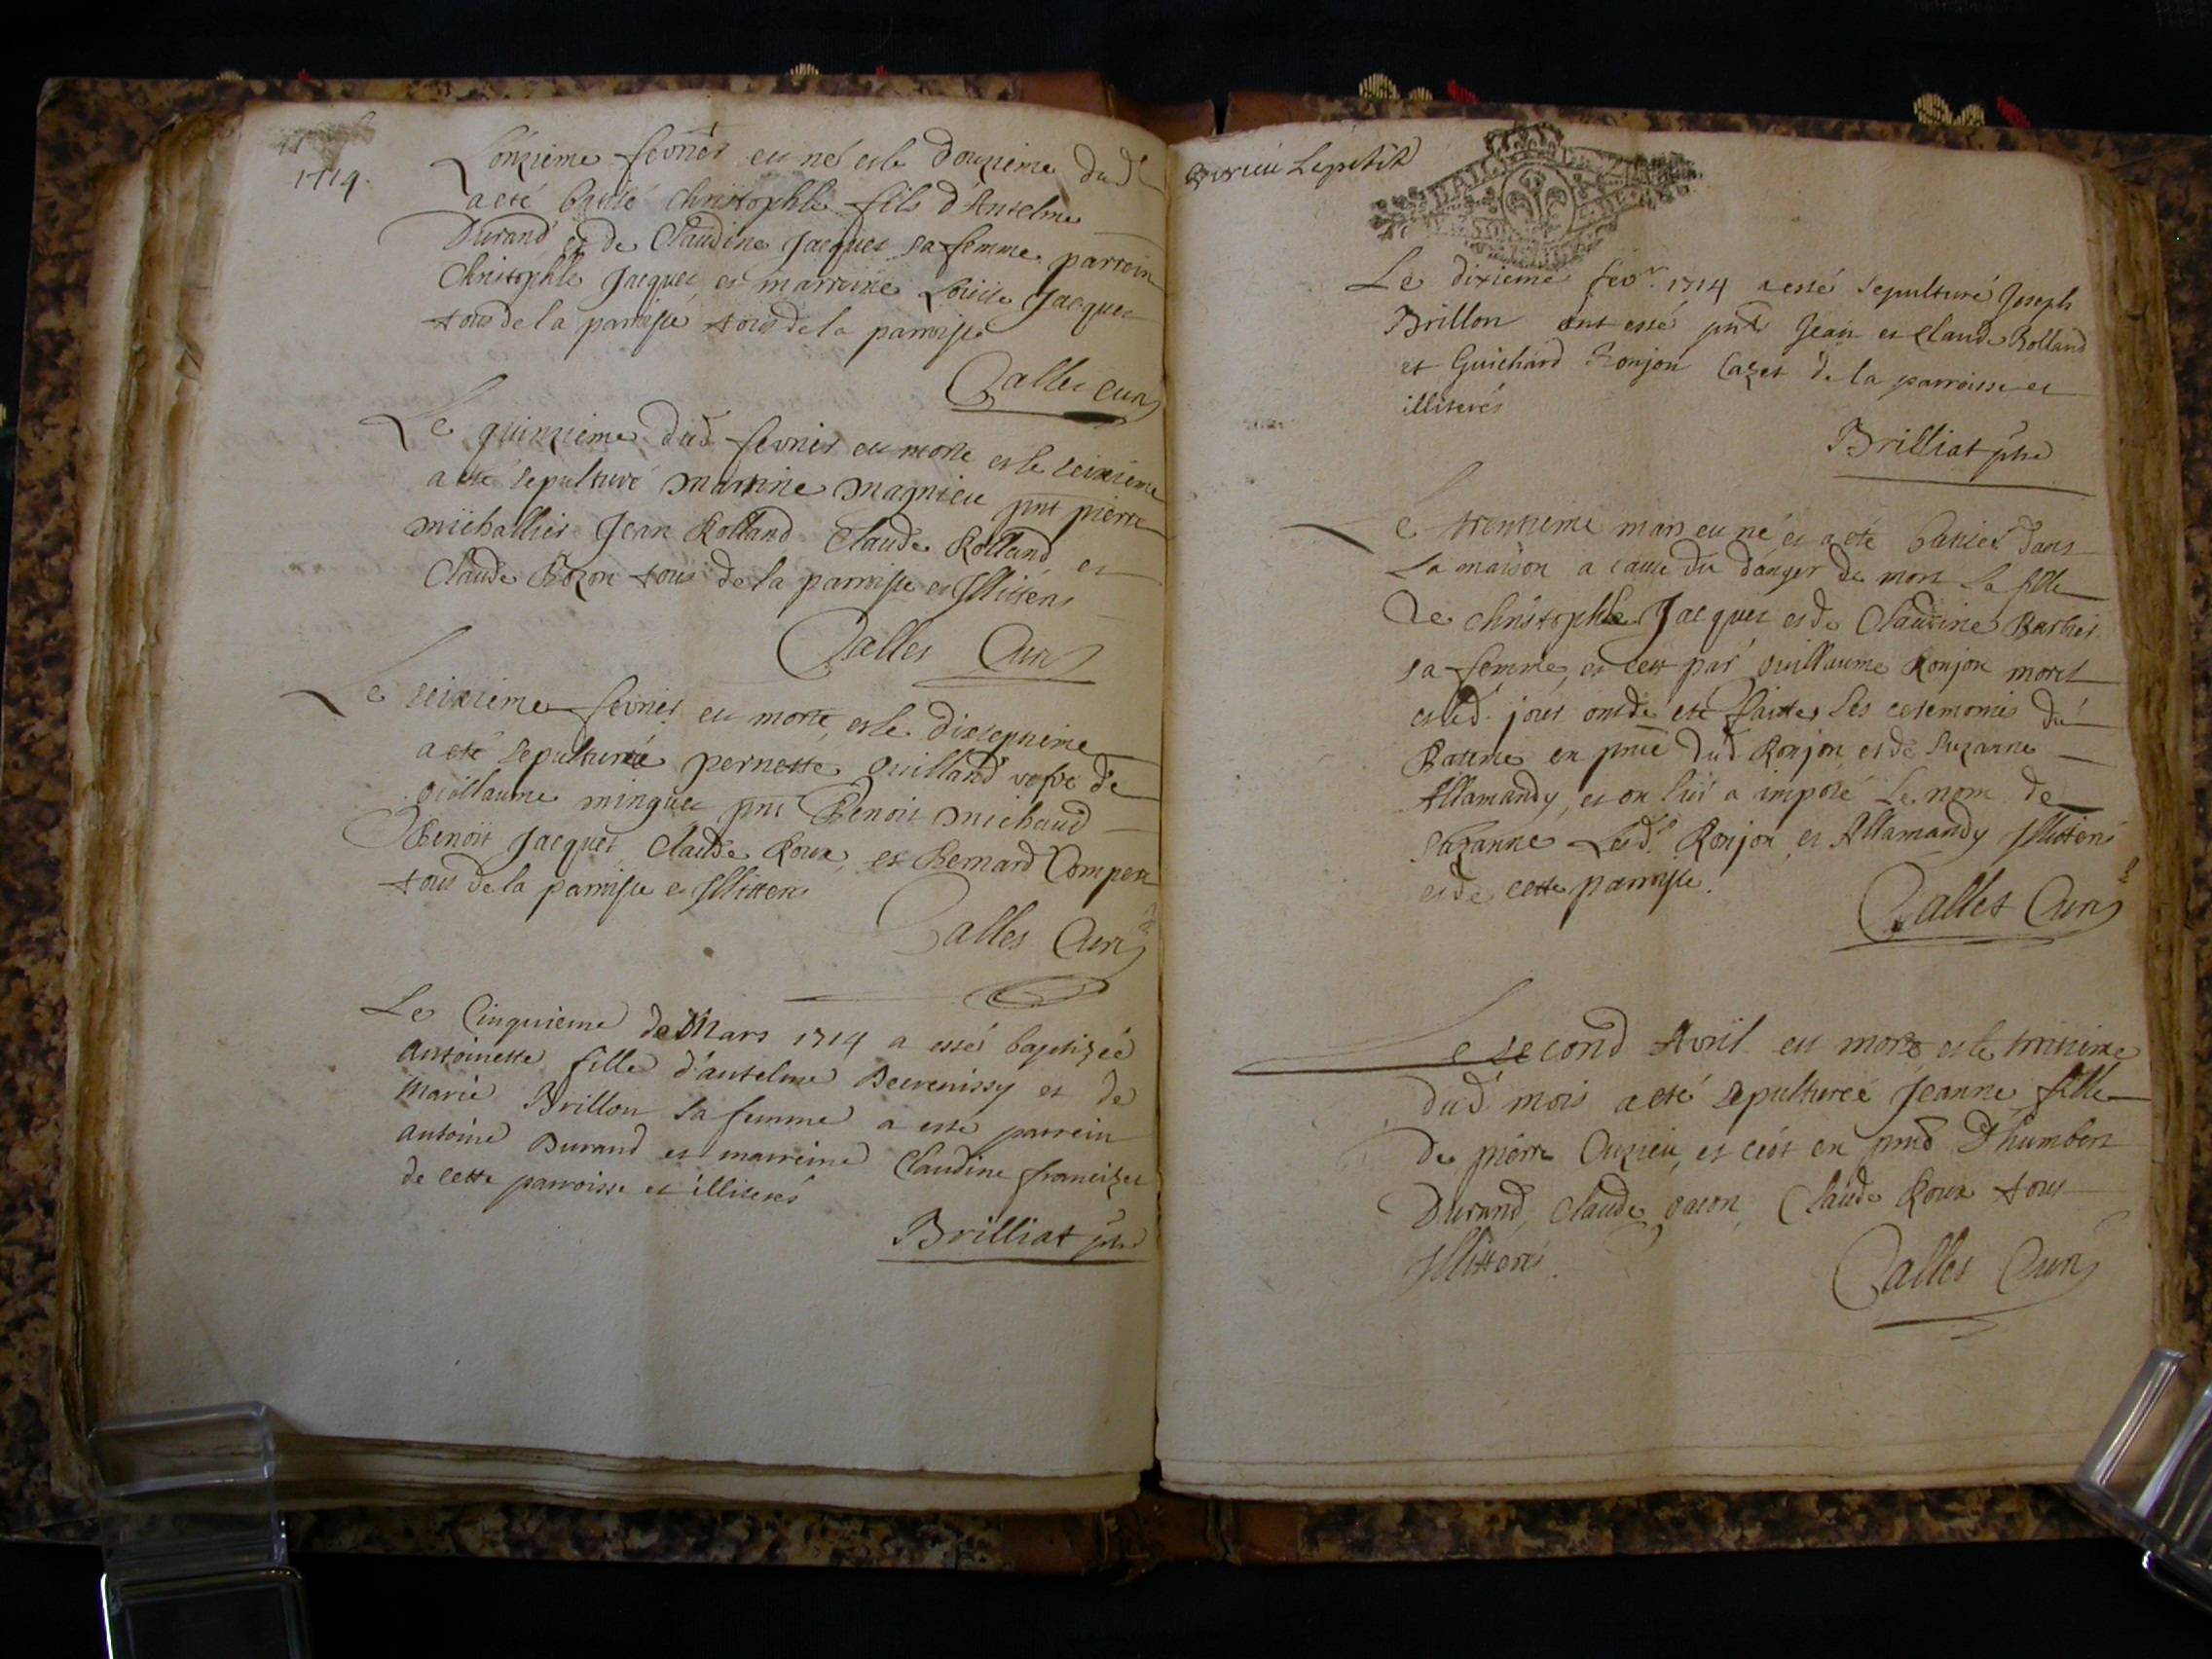 1714.
L'onzieme fevrier est né et le douzieme dud
a eté batisé christophle fils d'Antelme
Durand et de Claudine Jacquet sa femme parrein
Christophle Jacquet et marreine Loüise Jacquet
tous de la parroisse tous de la parroisse
Salles Curé
Le quinzieme dud fevrier est morte et le seizieme
a eté sepulturé martine magnieu pnt pierre
michallier Jean Rolland Claude Rolland et
Claude Bozon tous de la parroisse et Jllitterés
Salles Curé
Le seizieme fevrier est morte, et le dixseptieme
a eté sepulturée pernette guilland vefve de
guillaume minguet pnt Benoit michaud
Benoit Jacquet Claude Roux, et Bernard Comperet
tous de la parroisse et Jllitterés
Salles Curé
Le Cinquieme de Mars 1714 a esté baptizée
Antoinette fille d'antelme et de
Marie Brillon sa femme a esté parrein
Antoine Durand et marreine Claudine francizet
de cette parroisse et illiterés
Brilliat ptre
Le petit
Le dixieme fevr. 1714 a esté sepulturé Joseph
Brillon ont esté pnts Jean et Claude Rolland
et Guichard Ronjon Cazet de la parroisse et
illiterés
Brilliat ptre
Le trentieme mars est né et a eté batisé dans
la maison a cause du danger de mort la fille
de christophle Jacquet et de Claudine Barbier
sa femme, et cest par guillaume Ronjon morel
et led. jour ont été faittes les ceremonies du
Bateme en pnce dud. Ronjon et de Suzanne
Allamandy, et on luy a imposé le nom de
Suzanne Lesd. Ronjon et Allamandy Jllitterés
et de cette parroisse.
Salles Curé
Le second Avril est morte et le troisieme
dud. mois a eté sepulturée Jeanne fille
de pierre Cuzieu, et ceci en pnce D'humbert
Durand, Claude gacon, Claude Roux tous
Jllitterés.
Salles Curé